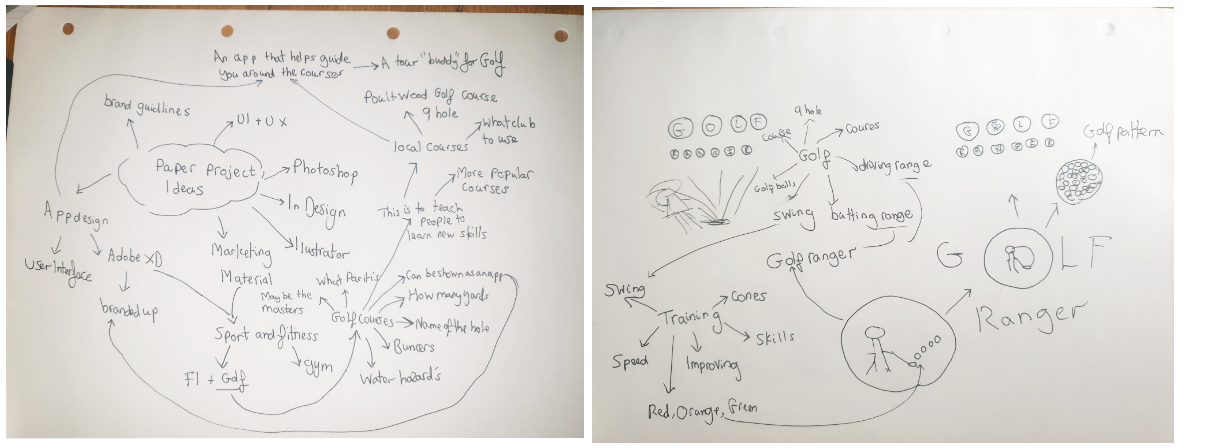 An app that helps guide
you around the courser
A tour "buddy" for Golf
brand guidlines
UI + UX
Poultwood Golf Course
9 hole
What club
to use
local courses
Paper Project
Ideas
Photoshop
More Popular
Courses
In Design
This is to teach
people to
learn new skills
App design
Marketing
Material
Ilustrator
User Interface
Adobe XD
branded up
What Par it is
Maybe the
masters
Can be shown as an app
How many yards
Golf Courses
Name of the hole
Buncers
Water hazard's
Sport and fitness
gym
F1 + Golf
9 hole
G O L F
Course
Coures
R A N G E R
Golf
driving range
Golf balls
Swing
batting range
Golf ranger
G O L F
R A N G E R
Golf pattern
G L F
Ranger
Swing
Training
Cones
Skills
Speed
Improving
Red, Orange, Green